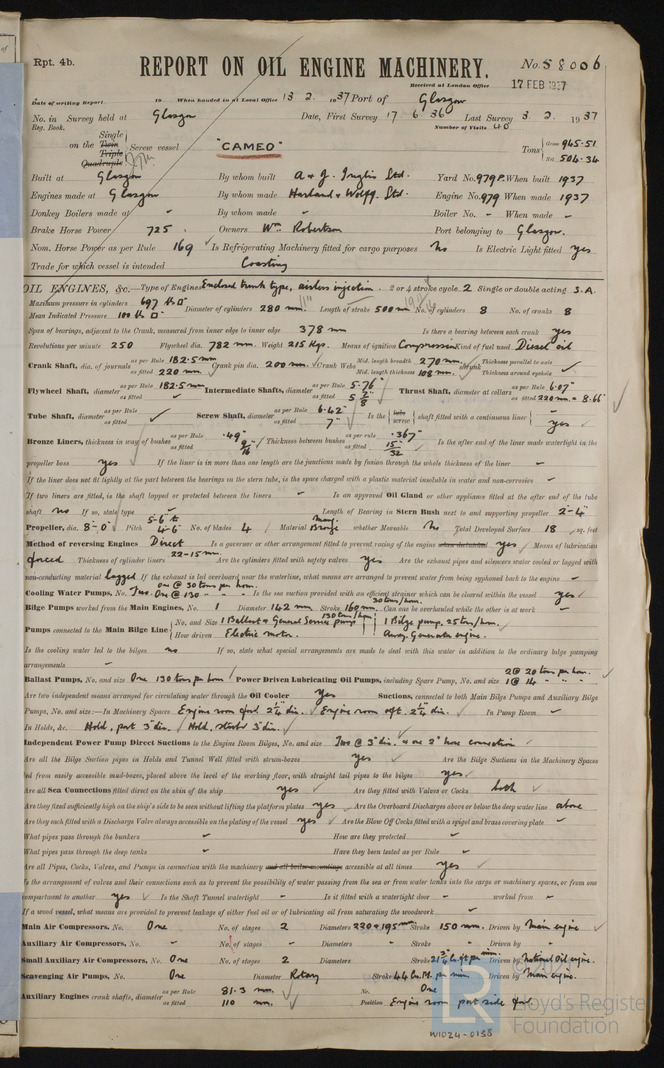 Rpt. 4b.
REPORT ON OIL ENGINE MACHINERY.
No. 58006
Received at London Office
17 FEB 1937
Date of writing Report 19 When handed in at Local Office 13 2. 1937 Port of Glasgow
No. in Survey held at Glasgow Date, First Survey 17 6 36 Last Survey 3 2. 1937
Reg. Book. Number of Visits 40
on the Single Twin Triple Quadruple Screw vessel "CAMEO" Tons Gross 945.51 Net 504.34
Built at Glasgow By whom built A & J. Inglis Ltd. Yard No. 979P. When built 1937
Engines made at Glasgow By whom made Harland & Wolff, Ltd. Engine No. 979 When made 1937
Donkey Boilers made at - By whom made - Boiler No. - When made -
Brake Horse Power 725. Owners Wm Robertson Port belonging to Glasgow.
Nom. Horse Power as per Rule 169 Is Refrigerating Machinery fitted for cargo purposes No Is Electric Light fitted yes
Trade for which vessel is intended Coasting
OIL ENGINES, &c.—Type of Engines Enclosed trunk type, airless injection. 2 or 4 stroke cycle 2 Single or double acting S.A.
Maximum pressure in cylinders 697 lb Diameter of cylinders 280 mm 11" Length of stroke 500 mm No. of cylinders 8 No. of cranks 8
Mean Indicated Pressure 100 lb
Span of bearings, adjacent to the Crank, measured from inner edge to inner edge 378 mm Is there a bearing between each crank yes
Revolutions per minute 250 Flywheel dia. 782 mm. Weight 215 Kgs. Means of ignition Compression Kind of fuel used Diesel oil
Crank Shaft, dia. of journals as per Rule 182.5 mm as fitted 220 mm Crank pin dia. 200 mm. Crank Webs Mid. length breadth 270 mm. Mid. length thickness 108 mm. shrunk Thickness parallel to axis Thickness around eyehole
Flywheel Shaft, diameter as per Rule 182.5 mm as fitted Intermediate Shafts, diameter as per Rule 5.76" as fitted 5 7/8" Thrust Shaft, diameter at collars as per Rule 6.07" as fitted 220 mm = 8.66"
Tube Shaft, diameter as per Rule as fitted Screw Shaft, diameter as per Rule 6.42" as fitted 7" Is the tube screw shaft fitted with a continuous liner yes
Bronze Liners, thickness in way of bushes as per Rule .49" as fitted 9/16" Thickness between bushes as per rule .367" as fitted 15/32" Is the after end of the liner made watertight in the
propeller boss yes If the liner is in more than one length are the junctions made by fusion through the whole thickness of the liner -
If the liner does not fit tightly at the part between the bearings in the stern tube, is the space charged with a plastic material insoluble in water and non-corrosive -
If two liners are fitted, is the shaft lapped or protected between the liners - Is an approved Oil Gland or other appliance fitted at the after end of the tube
shaft no If so, state type Length of Bearing in Stern Bush next to and supporting propeller 2'-4"
Propeller, dia. 8'-0" Pitch 5'-6" to 4'-6" No. of blades 4 Material Mang. Bronze whether Moveable No Total Developed Surface 18 sq. feet
Method of reversing Engines Direct Is a governor or other arrangement fitted to prevent racing of the engine when declutched yes Means of lubrication
forced Thickness of cylinder liners 22-15 mm. Are the cylinders fitted with safety valves yes Are the exhaust pipes and silencers water cooled or lagged with
non-conducting material lagged If the exhaust is led overboard near the waterline, what means are arranged to prevent water from being syphoned back to the engine -
Cooling Water Pumps, No. Two. one @ 30 tons per hour. One @ 130 " " " Is the sea suction provided with an efficient strainer which can be cleared within the vessel yes
Bilge Pumps worked from the Main Engines, No. 1 Diameter 142 mm Stroke 160 mm. 30 tons/hour Can one be overhauled while the other is at work -
Pumps connected to the Main Bilge Line No. and Size 1 Ballast & General Service pump 130 tons/hour 1 Bilge pump, 25 tons/hour.
How driven Electric motor. Away Generator engine.
Is the cooling water led to the bilges no If so, state what special arrangements are made to deal with this water in addition to the ordinary bilge pumping
arrangements -
Ballast Pumps, No. and size One 130 tons per hour Power Driven Lubricating Oil Pumps, including Spare Pump, No. and size 2 @ 20 tons per hour. 1 @ 14 " " "
Are two independent means arranged for circulating water through the Oil Cooler Yes Suctions, connected to both Main Bilge Pumps and Auxiliary Bilge
Pumps, No. and size:—In Machinery Spaces Engine room ford 2 2 1/4" dia. Engine room aft. 2 1/4" dia. In Pump Room -
In Holds, &c. Hold, port 3" dia. Hold, starbd 3" dia.
Independent Power Pump Direct Suctions to the Engine Room Bilges, No. and size Two @ 3" dia. & one 2" hose connection
Are all the Bilge Suction pipes in Holds and Tunnel Well fitted with strum-boxes yes Are the Bilge Suctions in the Machinery Spaces
led from easily accessible mud-boxes, placed above the level of the working floor, with straight tail pipes to the bilges yes
Are all Sea Connections fitted direct on the skin of the ship yes Are they fitted with Valves or Cocks both
Are they fitted sufficiently high on the ship's side to be seen without lifting the platform plates yes Are the Overboard Discharges above or below the deep water line above
Are they each fitted with a Discharge Valve always accessible on the plating of the vessel yes Are the Blow Off Cocks fitted with a spigot and brass covering plate -
What pipes pass through the bunkers - How are they protected -
What pipes pass through the deep tanks - Have they been tested as per Rule -
Are all Pipes, Cocks, Valves, and Pumps in connection with the machinery and all boiler mountings accessible at all times yes
Is the arrangement of valves and their connections such as to prevent the possibility of water passing from the sea or from water tanks into the cargo or machinery spaces, or from one
compartment to another yes Is the Shaft Tunnel watertight - Is it fitted with a watertight door - worked from -
If a wood vessel, what means are provided to prevent leakage of either fuel oil or of lubricating oil from saturating the woodwork -
Main Air Compressors, No. One No. of stages 2 Diameters 230 & 195 mm Stroke 150 mm. Driven by Main engine.
Auxiliary Air Compressors, No. - No. of stages - Diameters - Stroke - Driven by -
Small Auxiliary Air Compressors, No. One No. of stages 2 Diameters Stroke Driven by National Oil engine.
Scavenging Air Pumps, No. One Diameter Rotary Stroke 44 Cu.M. per min. Driven by Main engine.
Auxiliary Engines crank shafts, diameter as per Rule 81.3 mm as fitted 110 mm. No. One Position Engine room port side ford.
LR
Lloyd's Register
Foundation
W1024-0138